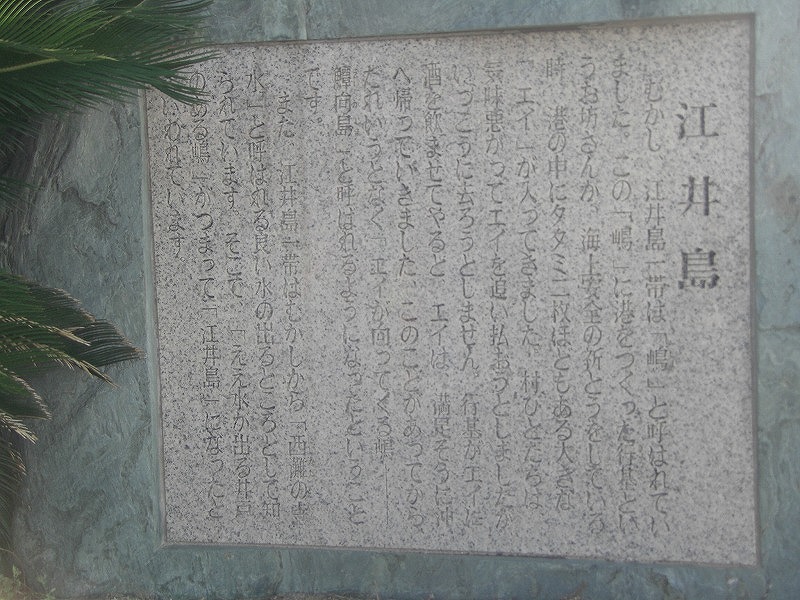 江井島
むかし、江井島一帯は「嶋」と呼ばれてい
ました。この「嶋」に港をつくった行基とい
うお坊さんが、海上安全の祈とうをしている
時、港の中にタタミ二枚ほどもある大きな
「エイ」が入ってきました。村ひとたちは
気味悪がってエイを追い払おうとしましたが
いっこうに去ろうとしません。行基がエイに
酒を飲ませてやると、エイは、満足そうに沖
へ帰っていきました。このことがあってから
だれいうとなく「エイが向ってくる嶋
向島」と呼ばれるようになったということ
です。
また、江井島一帯はむかしから「西灘の寺
水」と呼ばれる良い水の出るところとして知
られています。そこで、「ええ水が出る井戸
のある嶋」がつまって「江井島」になったと
いわれています。